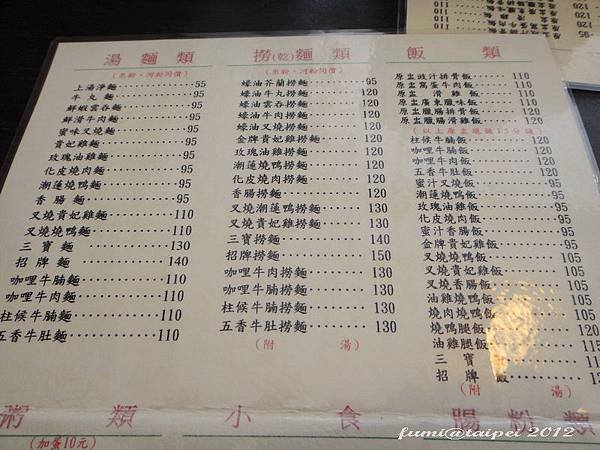 湯麵類
(米粉、河粉同價)
上湯淨麵 55
牛丸麵 95
鮮蝦雲吞麵 95
鮮滑牛肉麵 95
蜜味叉燒麵 95
貴妃雞麵 95
玫瑰油雞麵 95
化皮燒肉麵 95
潮蓮燒鴨麵 95
香腸麵 95
叉燒貴妃雞麵 110
叉燒燒鴨麵 110
三寶麵 130
招牌麵 140
咖哩牛腩麵 110
咖哩牛肉麵 110
柱候牛腩麵 110
五香牛肚麵 110
撈(乾)麵類
(米粉、河粉同價)
蠔油芥蘭撈麵 95
蠔油牛丸撈麵 120
蠔油雲吞撈麵 120
蠔油牛肉撈麵 120
蠔油叉燒撈麵 120
金牌貴妃雞撈麵 120
玫瑰油雞撈麵 120
潮蓮燒鴨撈麵 120
化皮燒肉撈麵 120
香腸撈麵 120
叉燒潮蓮燒鴨撈麵 130
叉燒貴妃雞撈麵 130
三寶撈麵 140
招牌撈麵 150
咖哩牛肉撈麵 130
咖哩牛腩撈麵 130
柱候牛腩撈麵 130
五香牛肚撈麵 130
(附湯)
飯類
原盅豉汁排骨飯 110
原盅窩蛋牛肉飯 110
原盅滑雞飯 110
原盅廣東臘味飯 110
原盅臘腸排骨飯 110
原盅臘腸滑雞飯 110
(以上原盅燒飯15分鐘)
柱候牛腩飯 120
咖哩牛腩飯 120
咖哩牛肉飯 120
五香牛肚飯 120
蜜汁叉燒飯 95
潮蓮燒鴨飯 95
玫瑰油雞飯 95
化皮燒肉飯 95
蜜汁香腸飯 95
金牌貴妃雞飯 95
叉燒燒鴨飯 105
叉燒貴妃雞飯 105
叉燒香腸飯 105
油雞燒鴨飯 105
燒肉燒鴨飯 105
燒鴨腿飯
油雞腿飯 115
三寶飯 115
招牌飯
(附湯)
粥類
(加蛋10元)
小食
腸粉類
fumi@taipei 2012